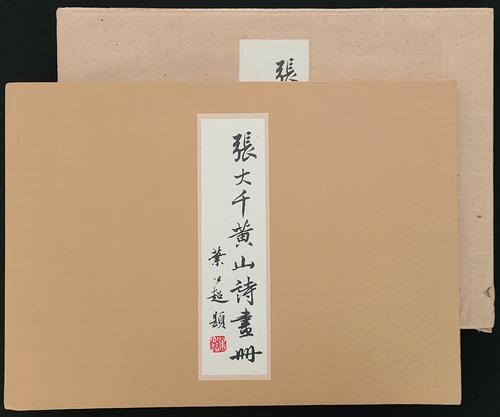 張大千黃山詩畫冊
葉公超題
張